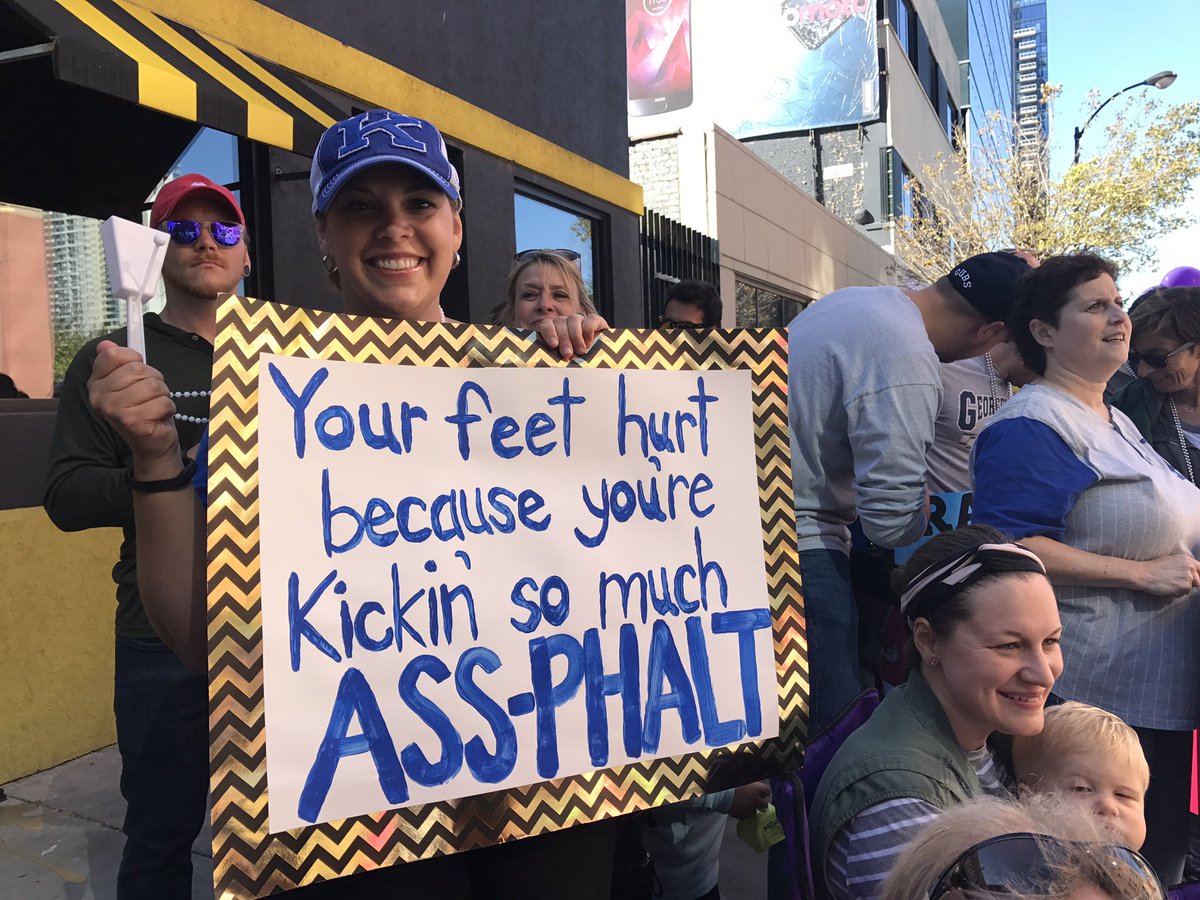 K
CUBS
GEORGE
Your feet hurt
because you're
Kickin' so much
ASS-PHALT